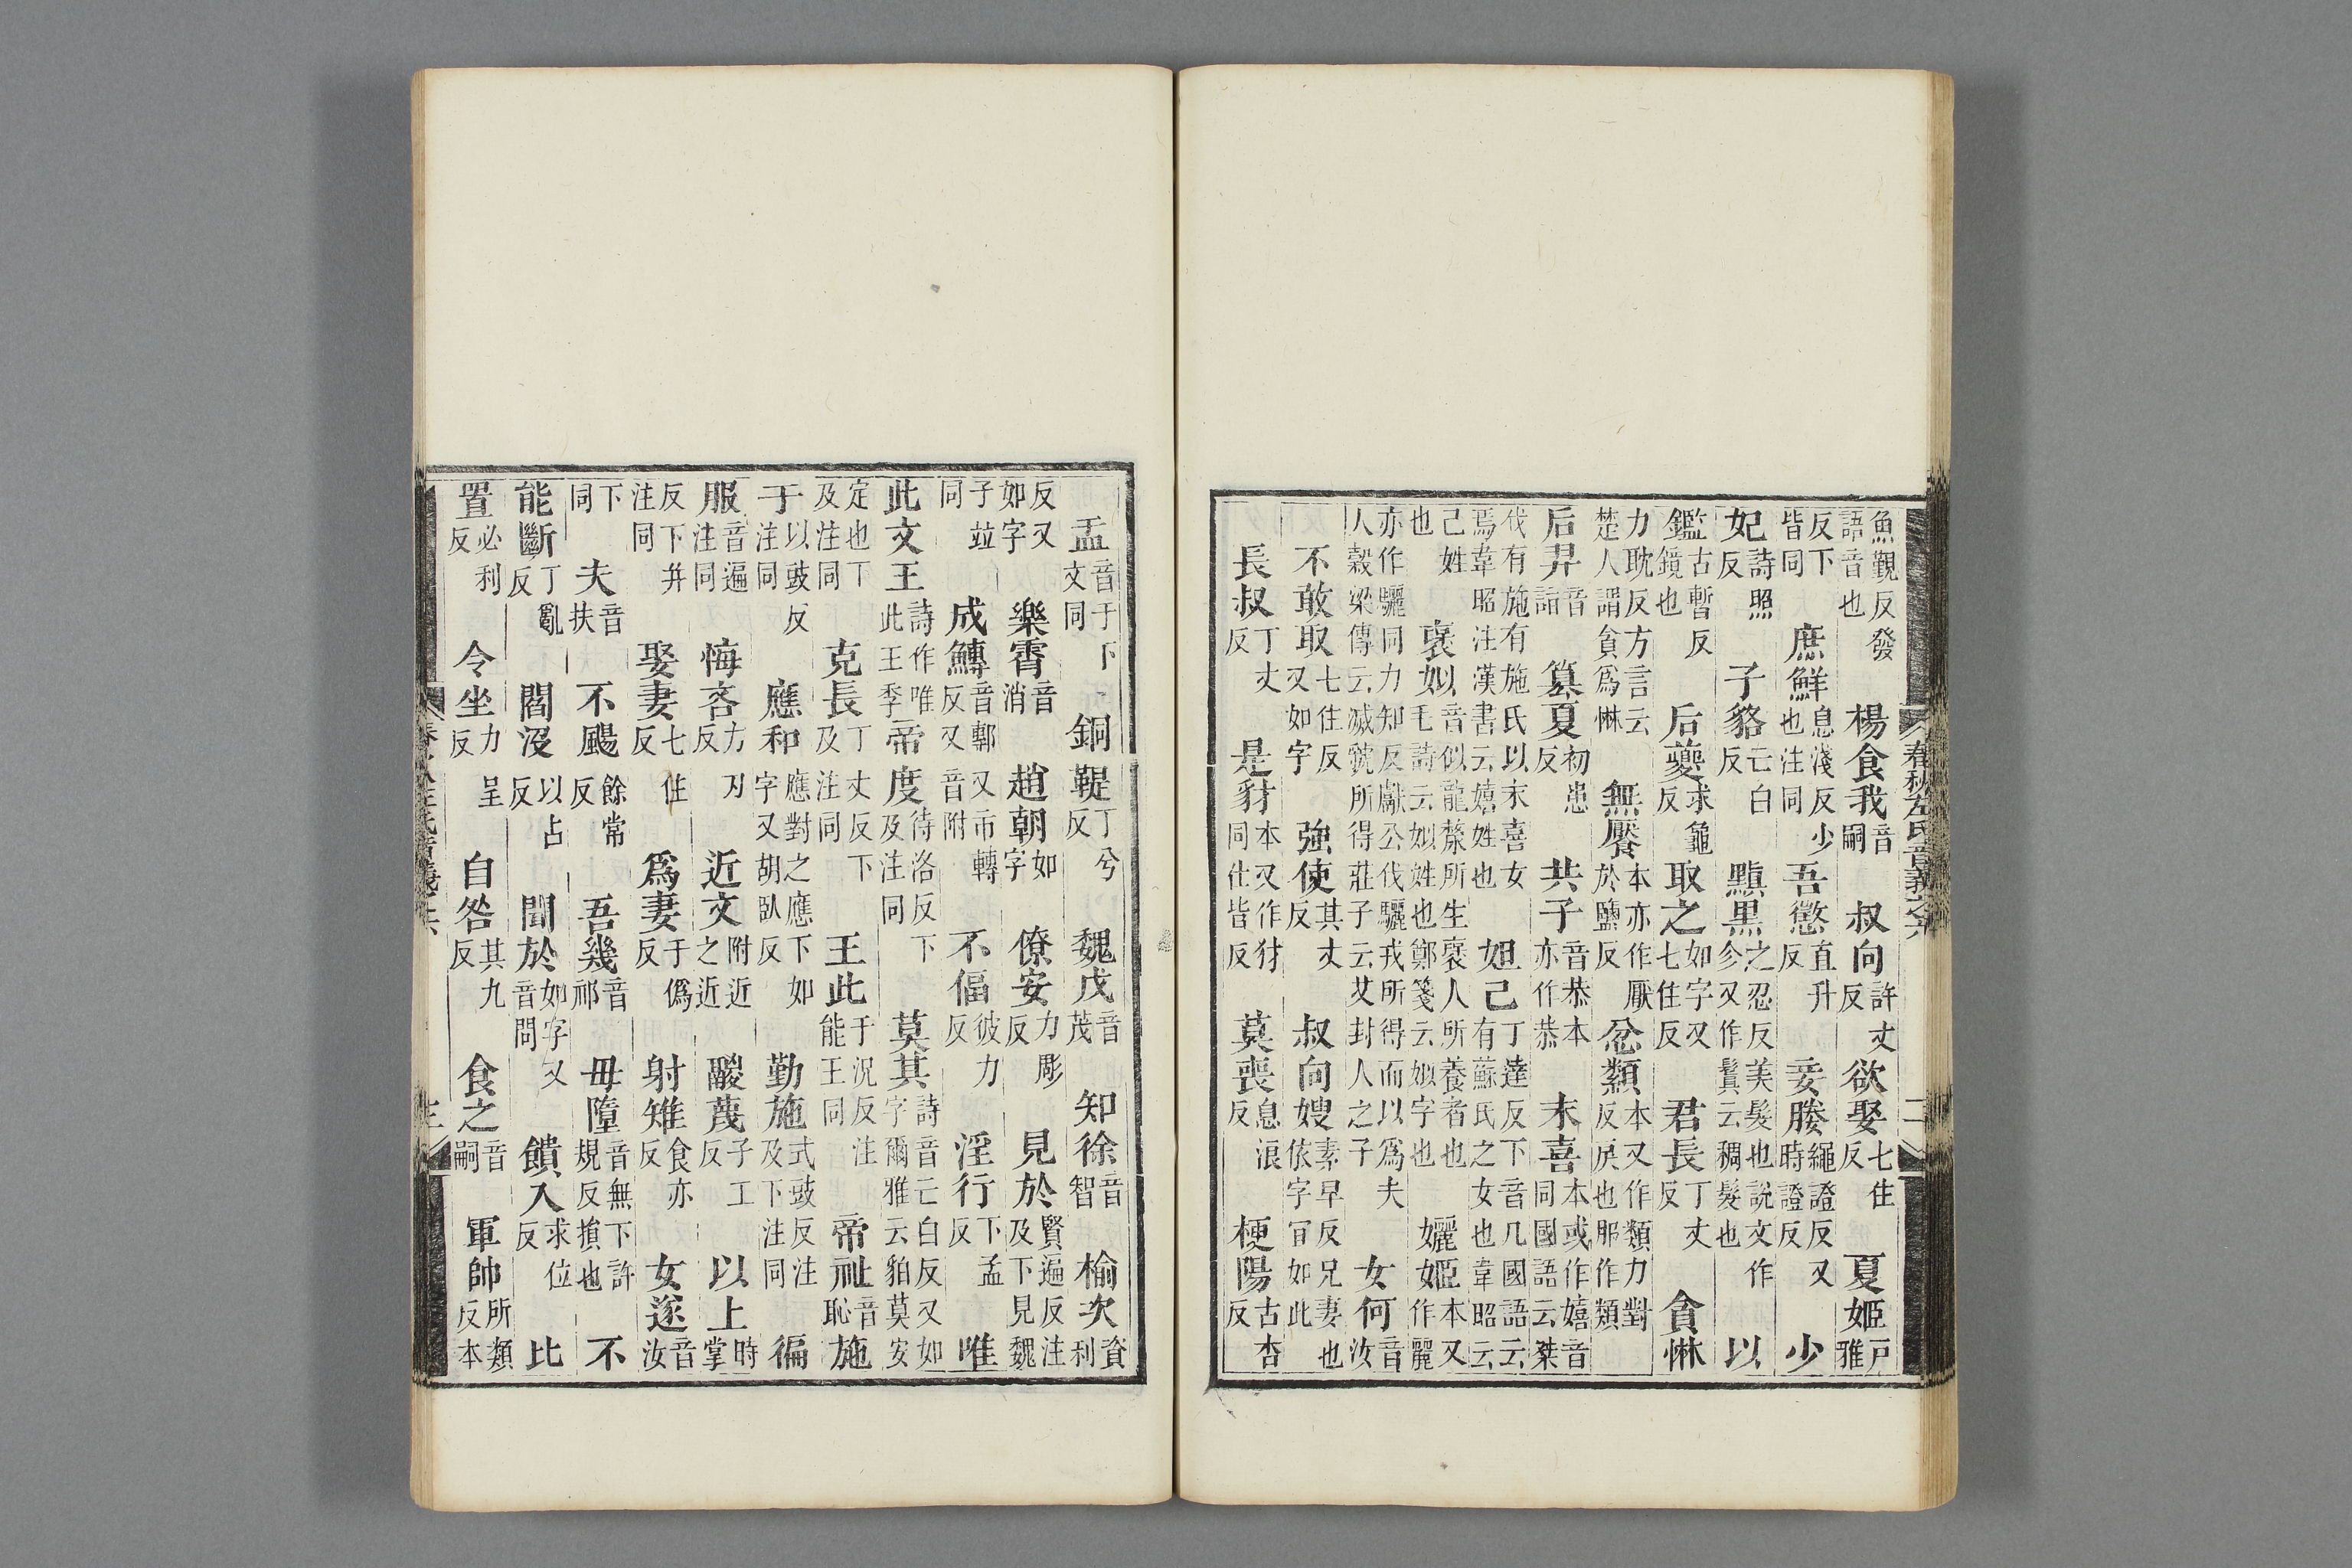 春秋左氏音義之六
魚覲反發語音也楊食我音嗣叔向許丈反欲娶七住反夏姬戶雅
反下皆同庶鮮息淺反少也注同吾懲直升反妾媵繩證反又時證反少
妃詩照反子貉亡白反黰黑之忍反美髮也說文作㐱又作鬒云稠髮也以
鑑古暫反鏡也后夔求龜反取之如字又七住反君長丁丈反貪惏
力耽反方言云楚人謂貪爲惏無饜本亦作厭於鹽反忿纇本又作類力對反戾也服作類
后羿音詣篡夏初患反共子音恭本亦作恭末喜本或作嬉音同國語云桀
伐有施有施氏以末喜女焉韋昭注漢書云嬉姓也妲己丁達反下音几國語云有蘇氏之女也韋昭云
己姓也襃姒音似龍漦所生襃人所養者也毛詩云姒姓也鄭箋云姒字也孋姬本又作麗
亦作驪同力知反獻公伐驪戎所得而以爲夫人穀梁傳云滅虢所得莊子云艾封人之子女何音汝
不敢取七住反又如字強使其丈反叔向嫂素早反兄妻也依字冝如此
長叔丁丈反是豺本又作犲同仕皆反莫喪息浪反梗陽古杏反
盂音于下文同銅鞮丁兮反魏戊音茂知徐音智榆次資利
反又如字樂霄音消趙朝如字僚安力彫反見於賢遍反注及下見魏
子竝同成鱄音鄟又市轉反又音附不偪彼力反淫行下孟反唯
此文王詩作唯此王季帝度待洛反下及注同莫其詩音亡白反又如字爾雅云貊莫安
定也下及注同克長丁丈反下及注同王此于況反注能王同帝祉音恥施
于以豉反注同應和應對之應下如字又胡臥反勤施式豉反注及下注同徧
服音遍注同悔吝力刃反近文附近之近鬷蔑子工反以上時掌
反下并注同娶妻七住反爲妻于僞反射雉食亦反女遂音汝
下同夫音扶不颺餘常反吾幾音祁毋墮音無下許規反損也不
能斷丁亂反閻沒以占反聞於如字又音問饋入求位反比
置必利反令坐力呈反自咎其九反食之音嗣軍帥所類反本